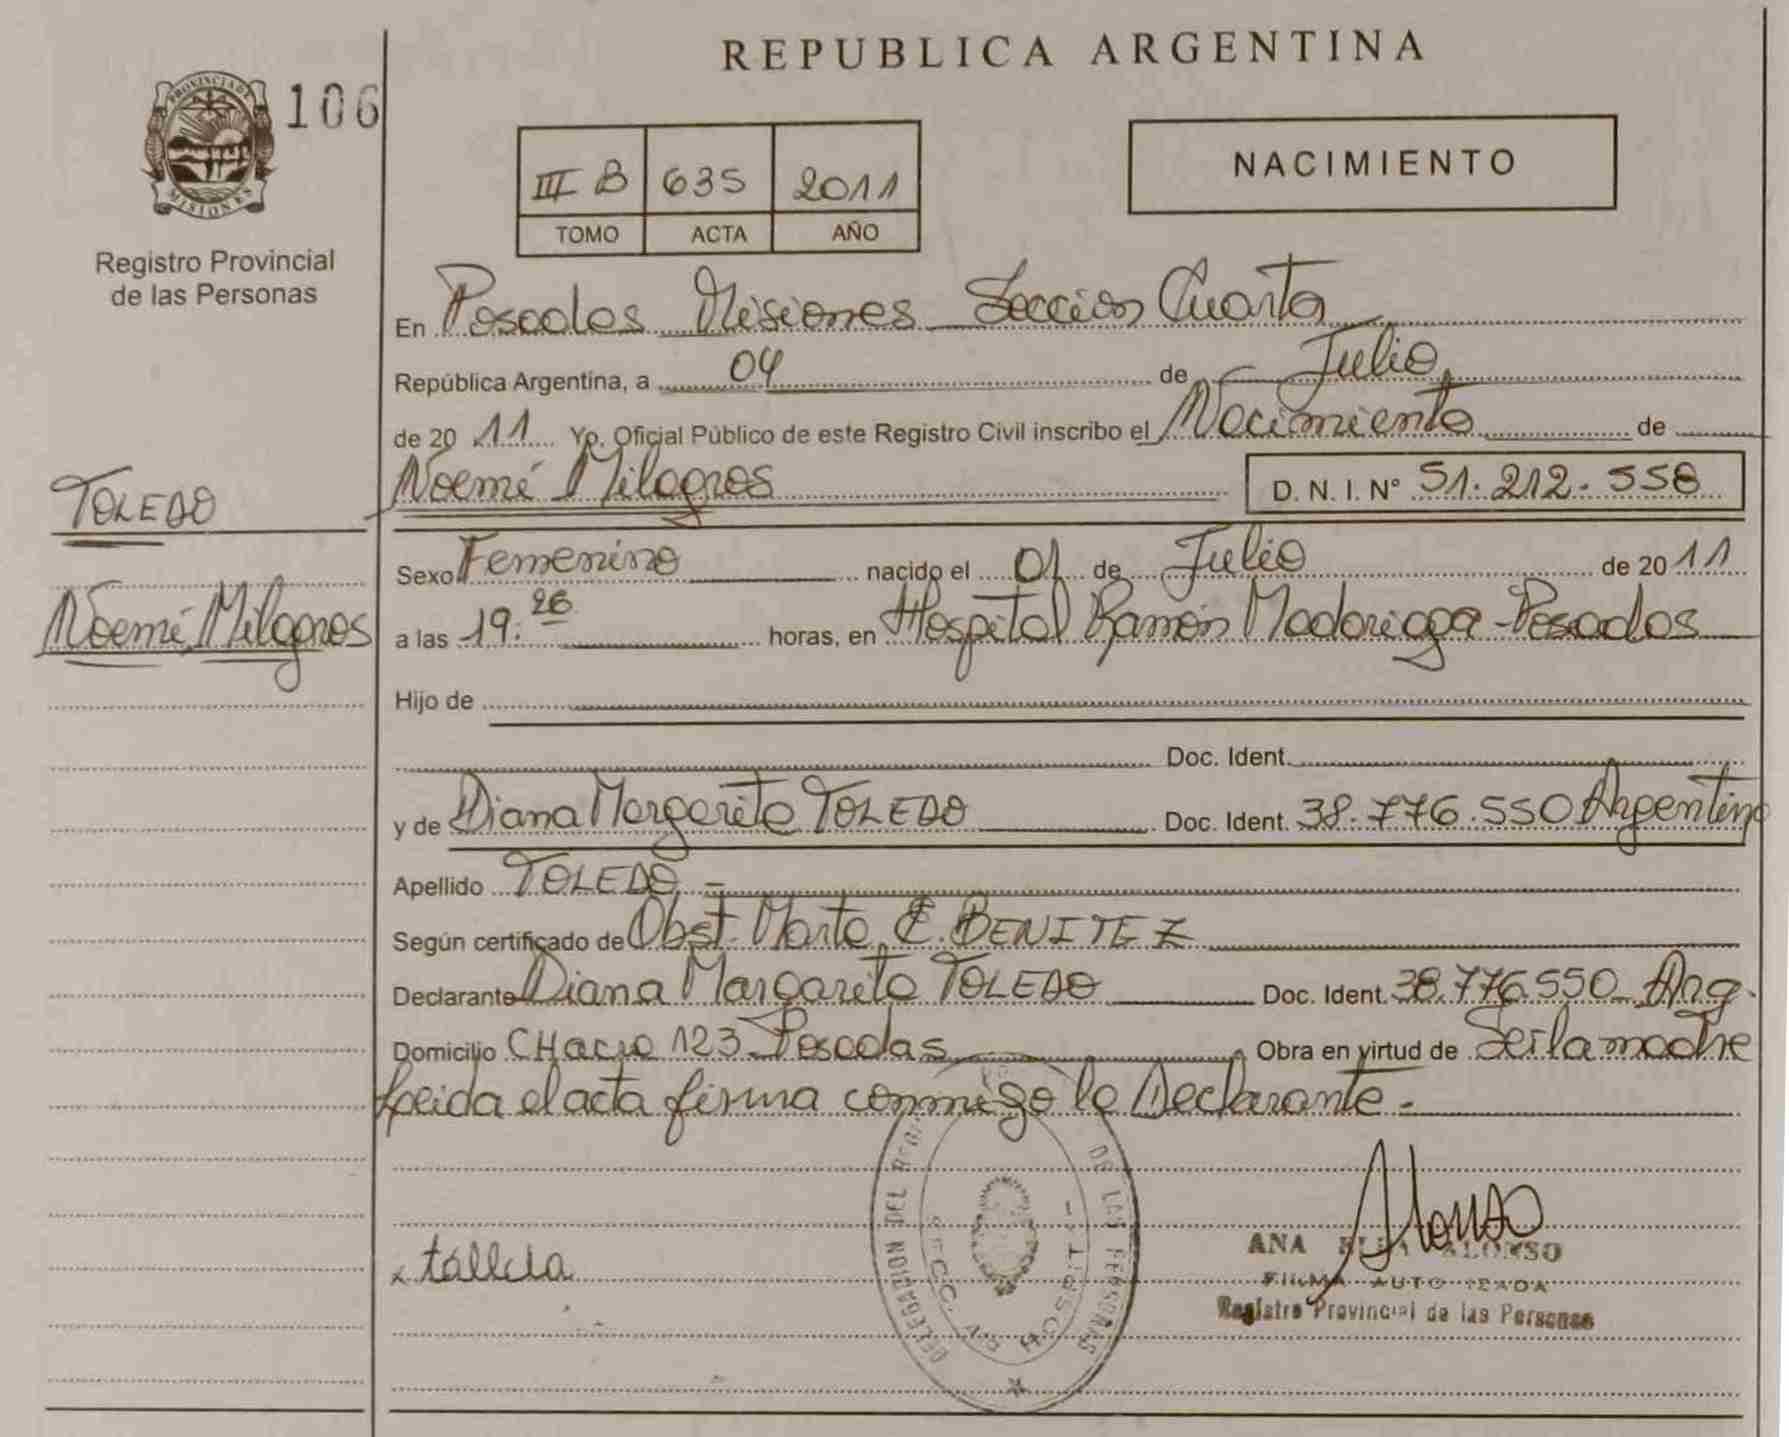 REPUBLICA ARGENTINA
PROVINCIA DE MISIONES
106
Registro Provincial
de las Personas
III B 635 2011
TOMO ACTA AÑO
NACIMIENTO
En Posadas Misiones Sección Cuarta
República Argentina, a 04 de Julio
de 20 11 Yo, Oficial Público de este Registro Civil inscribo el Nacimiento de
Noemí Milagros D. N. I. N° 51.212.558
TOLEDO
Noemí Milagros
Sexo Femenino nacido el 01 de Julio de 20 11
a las 19:26 horas, en Hospital Ramón Madariaga - Posadas
Hijo de
Doc. Ident.
y de Diana Margarita TOLEDO Doc. Ident. 38.776.550 Argentina
Apellido TOLEDO -
Según certificado de Obst. Marta E. BENITEZ
Declarante Diana Margarita TOLEDO Doc. Ident. 38.776.550 Arg.
Domicilio CHacra 123 - Posadas Obra en virtud de Ser la madre
Leida el acta firma conmigo la Declarante.-
DELEGACION DEL DE LAS PERSONAS
SECC. 4a
x
Alonso
ANA ALONSO
FIRMA AUTORIZADA
Registro Provincial de las Personas